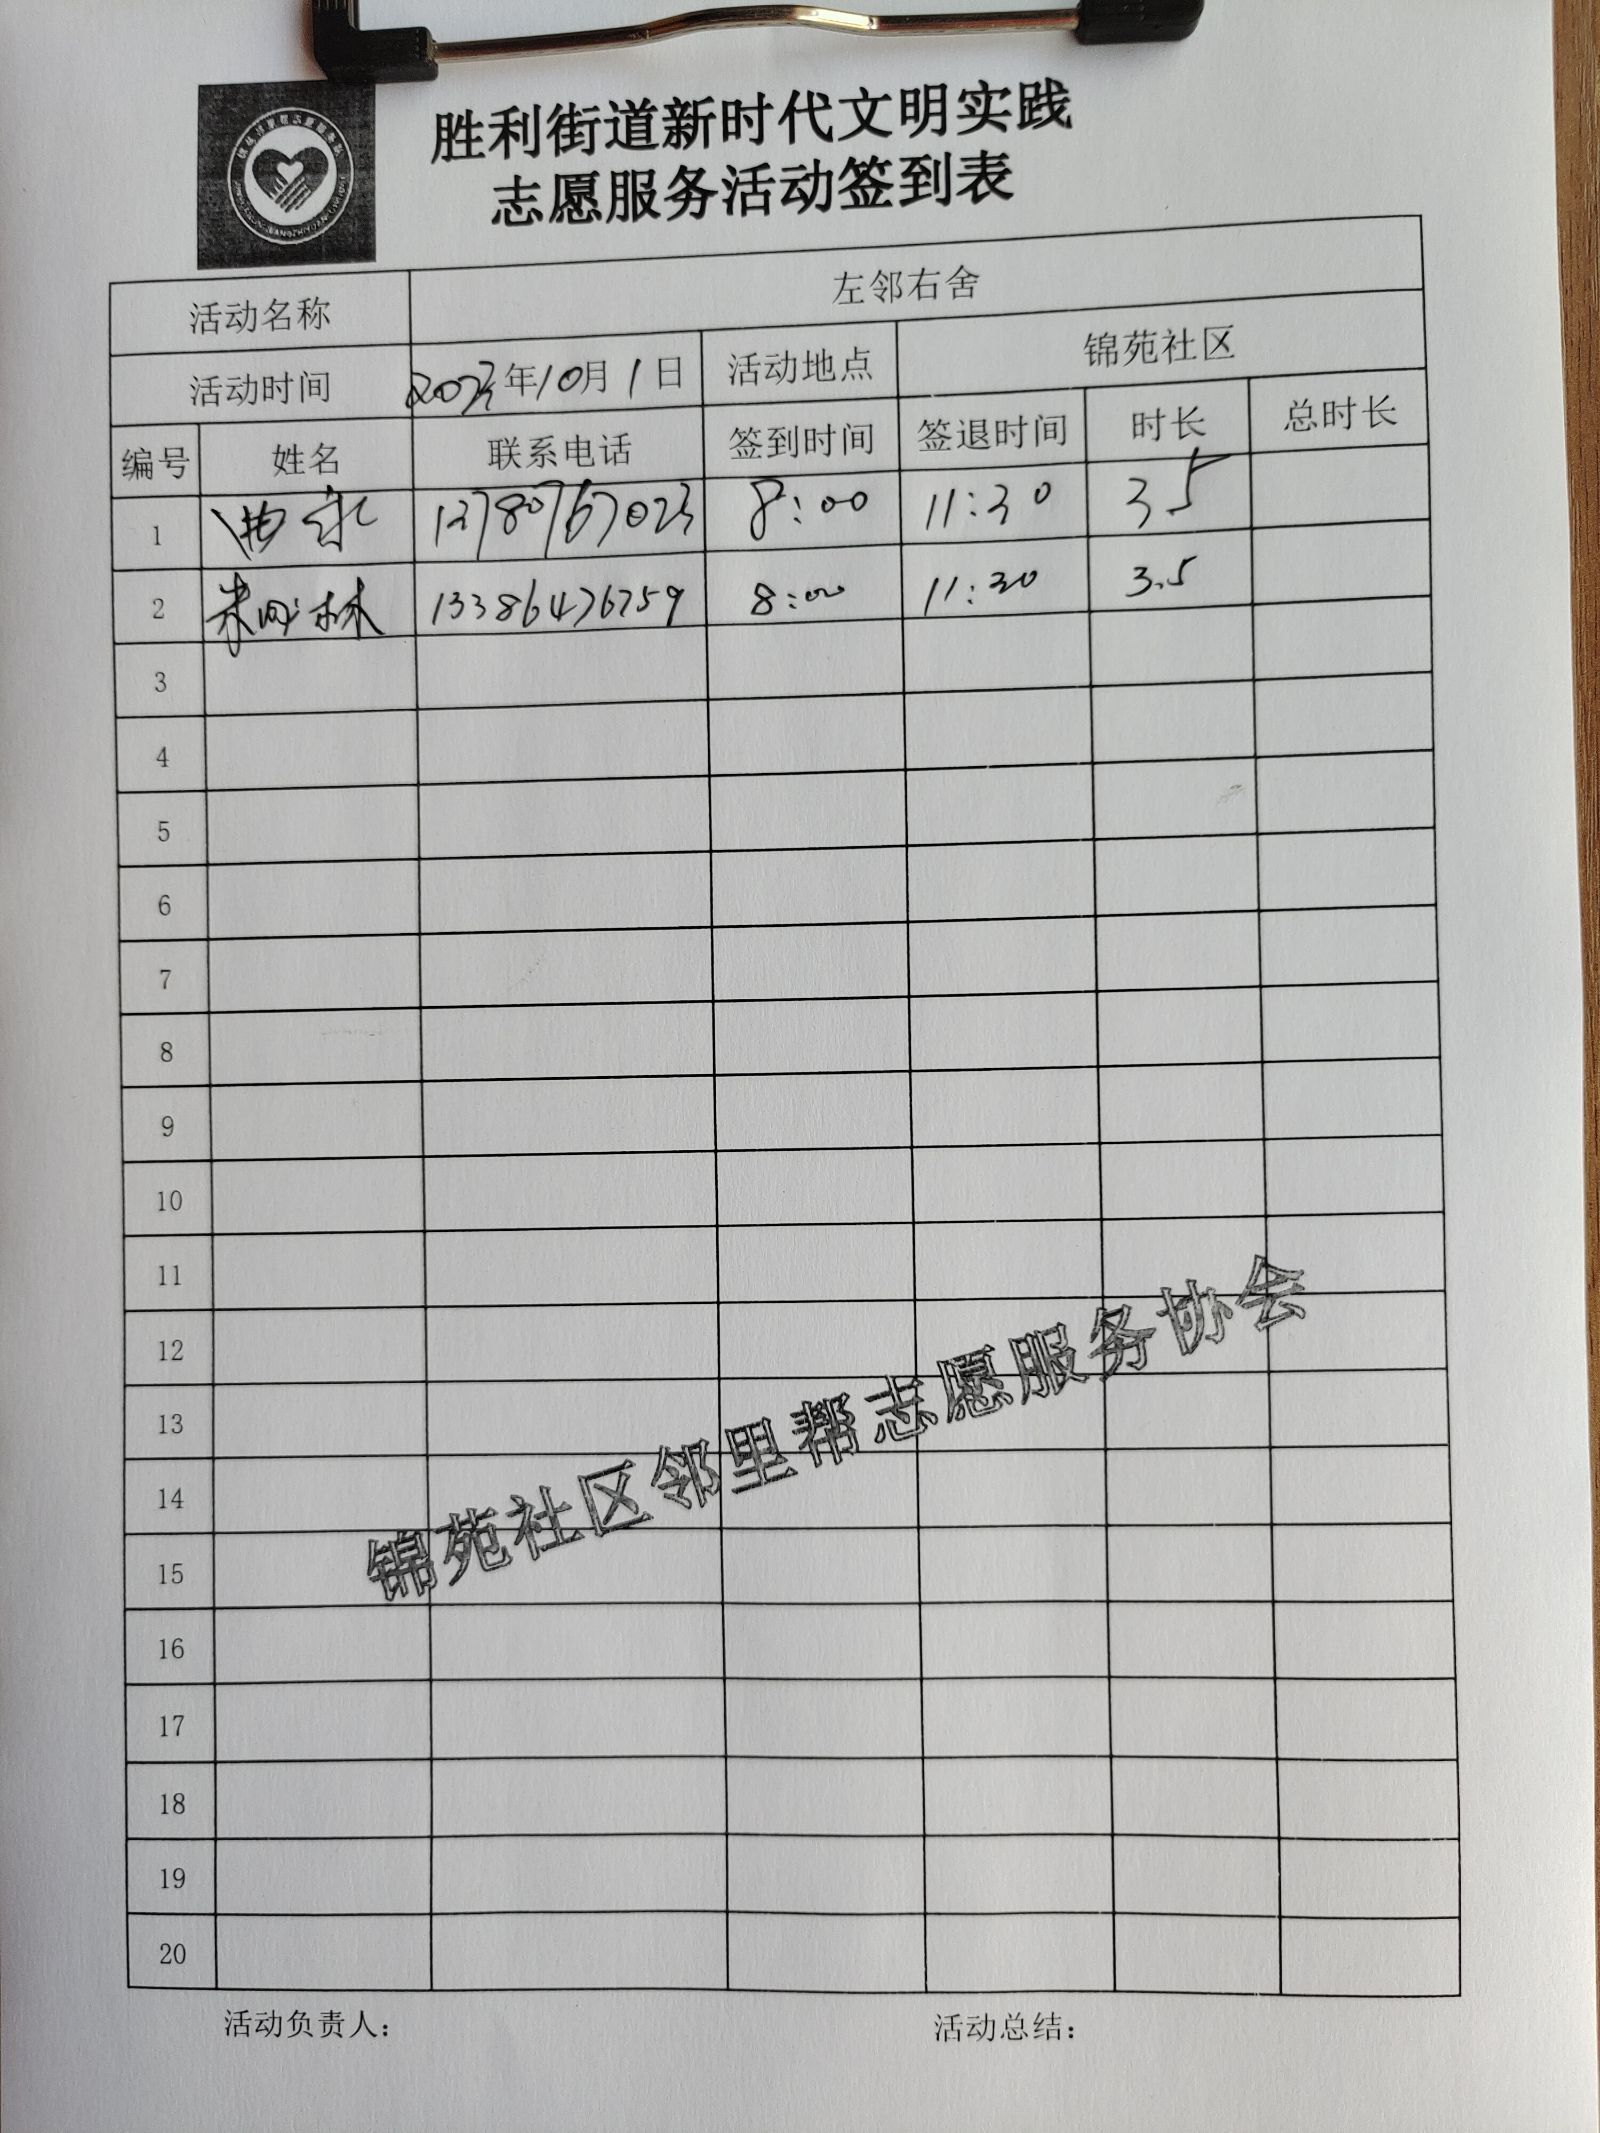 胜利街道新时代文明实践
志愿服务活动签到表
活动名称 左邻右舍
活动时间 2023年10月1日 活动地点 锦苑社区
编号 姓名 联系电话 签到时间 签退时间 时长 总时长
1 曲永 13780767023 8:00 11:30 3.5
2 林 13386476759 8:00 11:30 3.5
3
4
5
6
7
8
9
10
11
12
13
14
15
16
17
18
19
20
锦苑社区邻里帮志愿服务协会
活动负责人： 活动总结：